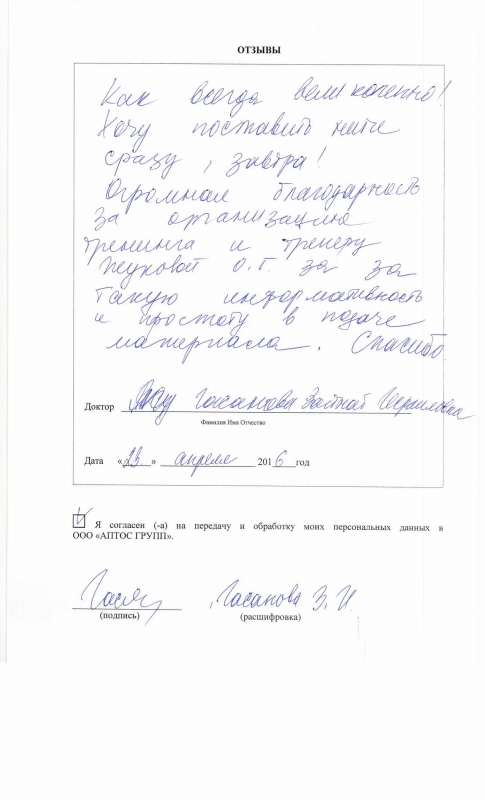 ОТЗЫВЫ
Как всегда великолепно!
Хочу поставить нити
сразу, завтра!
Огромная благодарность
за организацию
тренинга и тренеру
Жуковой О.Г. за за
такую информативность
и простоту в подаче
материала. Спасибо
Доктор Гасанова Зайнаб
Фамилия Имя Отчество
Дата «23» апреля 2016 год
Я согласен (-а) на передачу и обработку моих персональных данных в
ООО «АПТОС ГРУПП».
Гасанова З.И.
(подпись) (расшифровка)